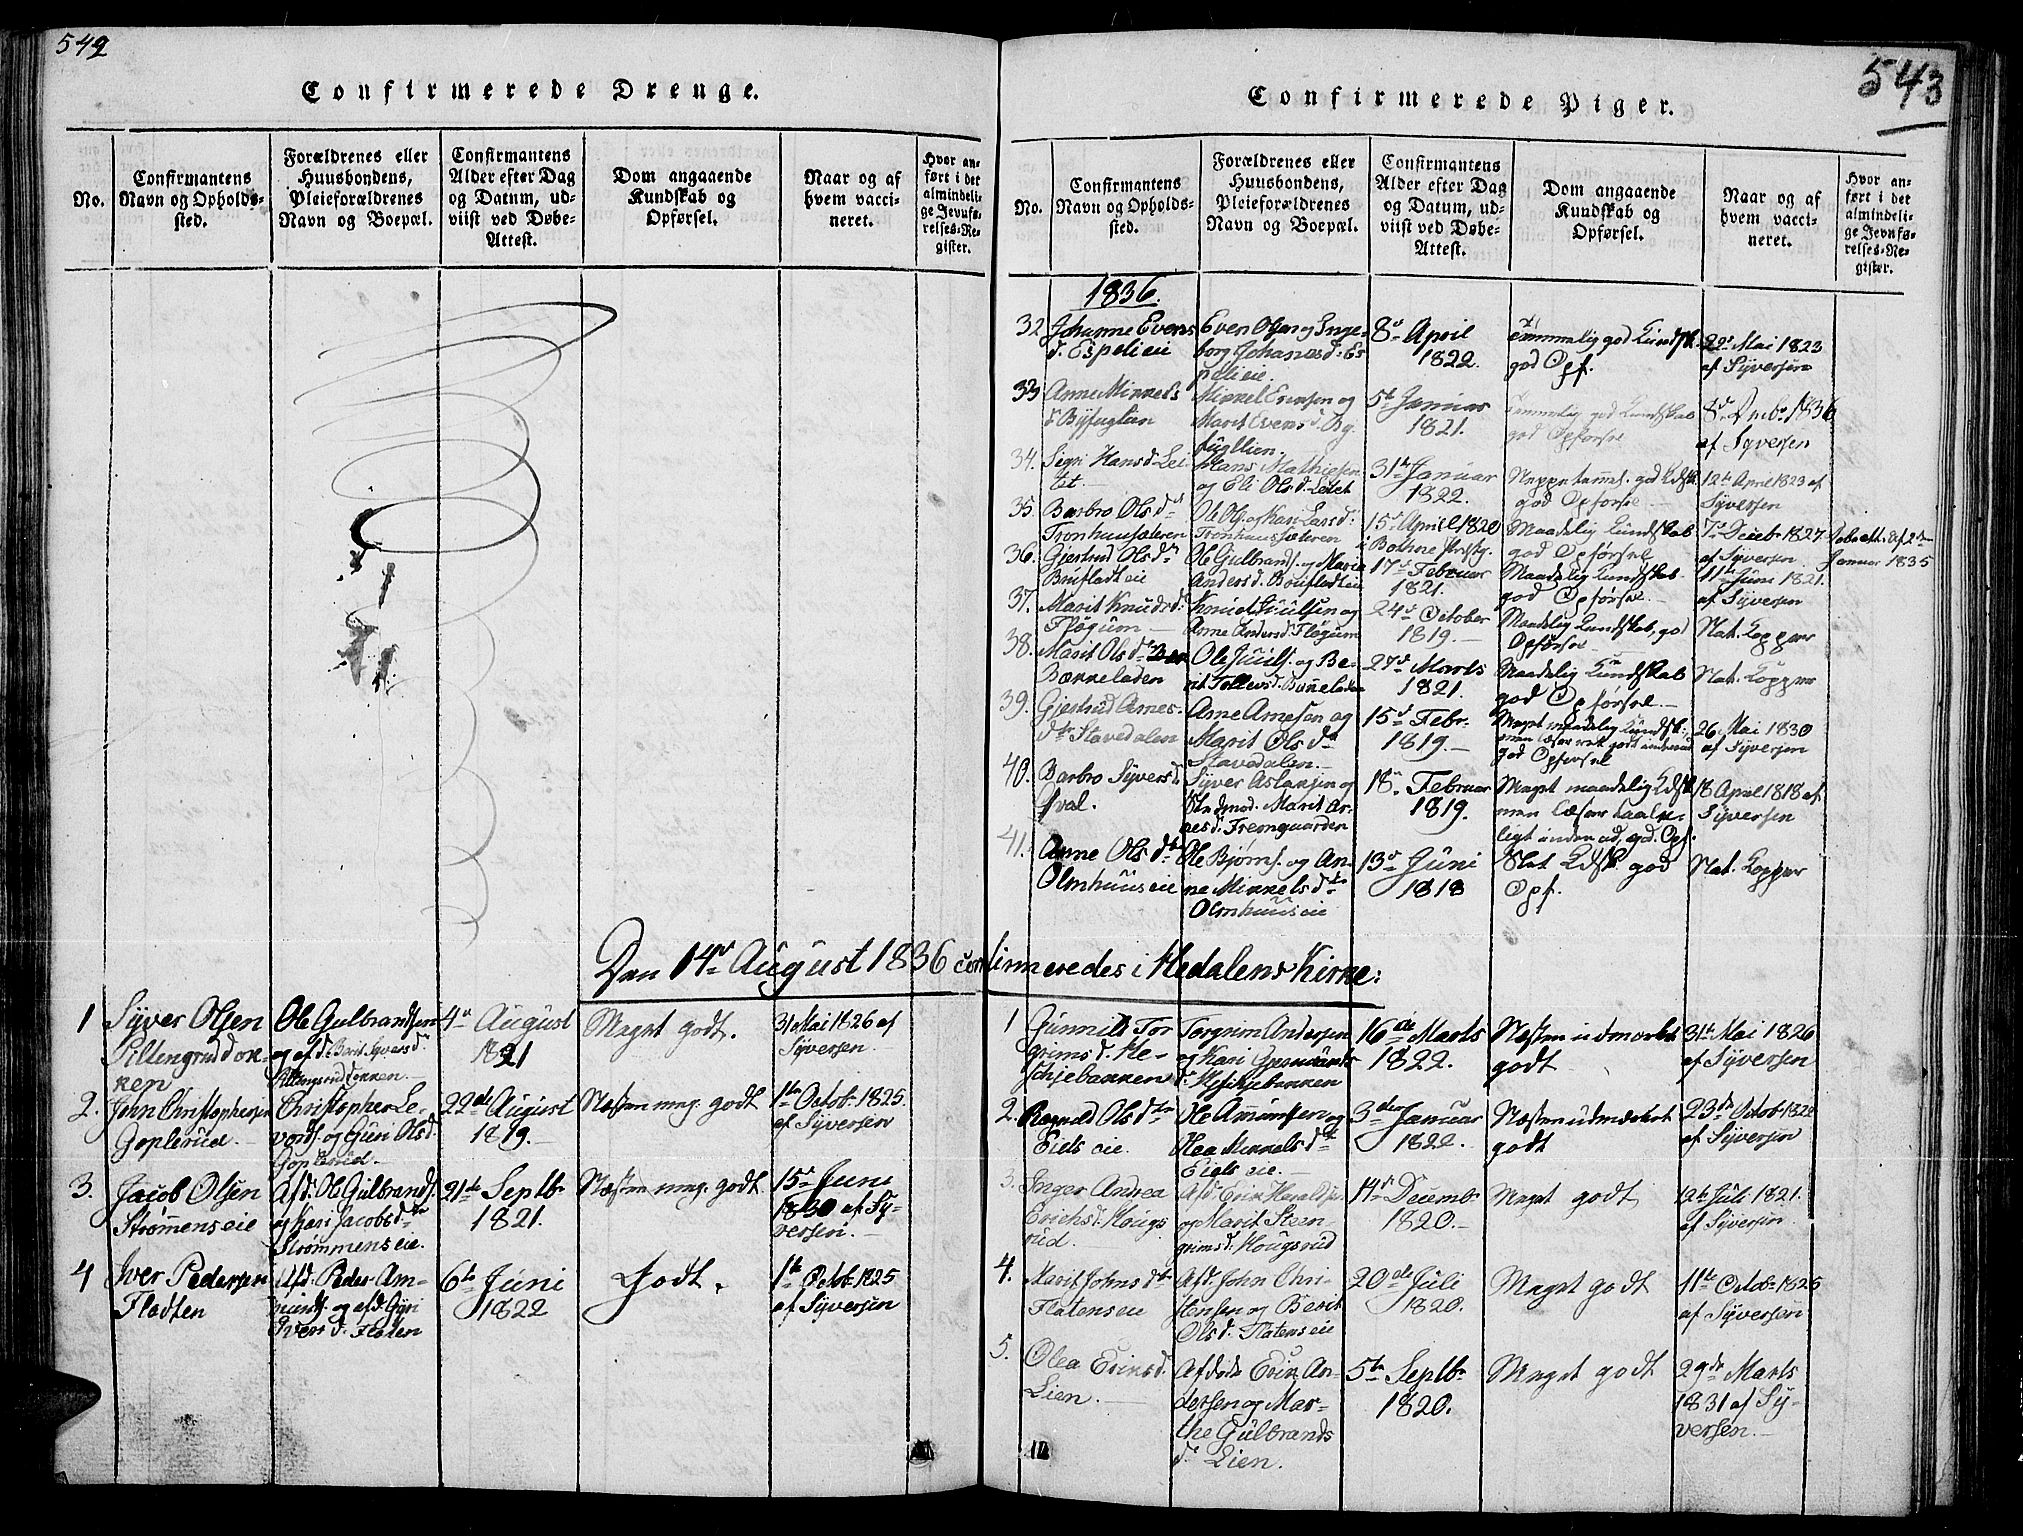 542
Confirmerede Drenge.
No.
Confirmantens
Navn og Opholds-
sted.
Forældrenes eller
Huusbondens,
Pleieforældrenes
Navn og Boepæl.
Confirmantens
Alder efter Dag
og Datum, ud-
viist ved Døbe-
Attest.
Dom angaaende
Kundskab og
Opførsel.
Naar og af
hvem vacci-
neret.
Hvor an-
ført i det
almindeli-
ge Jevnfø-
relses-Re-
gister.
Den 14de August 1836 confirmeredes i Hedalens Kirke:
1
Syver Olsen
Pillengruddok-
ken
Ole Gulbrandsen
og afd. Berit Syversdr
4de August
1821
Meget godt.
31 Mai 1826 af
Syversen
2.
John Christophersen
Goplerud
Christopher Le-
vords. og Guri Olsd.
Goplerud
22de August
1819.
Næsten meg. godt
1te Octob. 1825.
af Syversen
3.
Jacob Olsen
Strømmenseie
Afd. Ole Gulbrands.
og Kari Jacobsdtr
Strømmenseie.
21de Septbr
1821.
Næsten meg. godt
15de Juni
1830 af Sy-
versen.
4
Iver Pedersen
Fladten
Afd. Peder Am-
unds. og afd. Gyri
Ivers d. Fladen
6te Juni
1822
Godt.
1te Octob. 1825
af Syversen
543
Confirmerede Piger.
No.
Confirmantens
Navn og Opholds-
sted.
Forældrenes eller
Huusbondens,
Pleieforældrenes
Navn og Boepæl.
Confirmantens
Alder efter Dag
og Datum, ud-
viist ved Døbe-
Attest.
Dom angaaende
Kundskab og
Opførsel.
Naar og af
hvem vacci-
neret.
Hvor an-
ført i det
almindeli-
ge Jevnfø-
relses-Re-
gister.
1836.
32
Johanne Evens
d. Espelieie
Even Olsen og Inge-
borg Johannesd. Es
pelieie.
8de April
1822.
Temmelig god Kundsk.
god Opf.
29de Mai 1823
af Syversen
33
Anne Mikkels
d. Byfuglien
Mikkel Eriksen og
Marit Evensd. By-
fuglien.
5te Januar
1821.
Temmelig god Kundskab
god Opførsel
8de Decbr. 1836
af Syversen
34.
Segri Hansd. Lei-
tet.
Hans Mathiesen
og Eli Olsd. Leitet
31te Januar
1822.
Neppe temmel. god Kdsk.
god Opførsel.
12te April 1823 af
Syversen
35.
Barbro Olsdtr
Tronhuussæteren
Ole Ols. og Kari Larsd.
Tronhuussæteren
15de April 1820
i Præstg.
Maadelig Kundskab
god Opførsel
7de Deceb. 1827
af Syversen
Januar 1835
36.
Gjertrud Olsdtr
Brufladteie
Ole Gulbrands. og Maria
Andersd. Brufladteie
17de Februar
1821.
Maadelig Kundskab
god Opførsel.
11te Juni 1821.
af Syversen
37.
Marit Knudsd.
Fløgum
Knud Juulsen og
Anne Andersd. Fløgum
24de October
1819.
Maadelig Kundskab, god
Opførsel
Nat. Kopper
38.
Marit Olsdtr
Bønneladen
Ole Juuls. og Be-
rit Tollevsd. Bønneladen
27de Marts
1821.
Maadelig Kundskab
god Opførsel.
Nat. Kopper
39.
Gjertrud Arnes-
dtr Stavedalen
Arne Arnesen og
Marit Olsdtr
Stavedalen.
15de Febr.
1819.
Meget maadelig Kundsk.
men læser ret godt indenad
god Opførsel
26 Mai 1830
af Syversen
40.
Barbro Syversd.
Hval.
Syver Aslaksen og
Stedmod. Marit Ar-
nesd. Fremgaarden
18de Februar
1819.
Meget maadelig Kdsk.
men læser taale-
ligt inden ad, god Opf.
18 April 1818 af
Syversen
41.
Anne Olsdtr
Olmhuuseie
Ole Bjørns. og An-
ne Mikkelsdtr
Olmhuuseie
13de Juni
1818
Slet Kdsk. god
Opf.
Nat. Kopper
1
Gunnild Tor-
grims d. He-
Torgrim Andersen
og Kari
16de Marts
1822.
Næsten udmærket
godt
31te Mai 1826
af Syversen
2.
Ragnild Olsdtr
Eidseie.
Ole Amundsen og
Mikkelsdtr
3die Januar
1822.
Næsten udmærket
godt
23de Octob. 1822
af Syversen
3.
Inger Andrea
Erichsd. Hougs-
rud.
Afd. Erik Heraldsen
og Marit Steen-
grimsd. Hougsrud
14de Decemb.
1820.
Meget godt
12te Juli 1821.
af Syversen
4.
Marit Johnsdtr
Flatenseie
Afd. John Chri-
stensen og Berit
Olsd. Flatenseie
20de Juli
1820.
Meget godt
11te Octob. 1825
af Syversen
5.
Olea Eriksd.
Lien.
Afdøde Erik An-
dersen og Mar-
the Gulbrands
d. Lien.
5te Septbr
1820.
Meget godt
29de Marts
1831 af Sy-
versen.